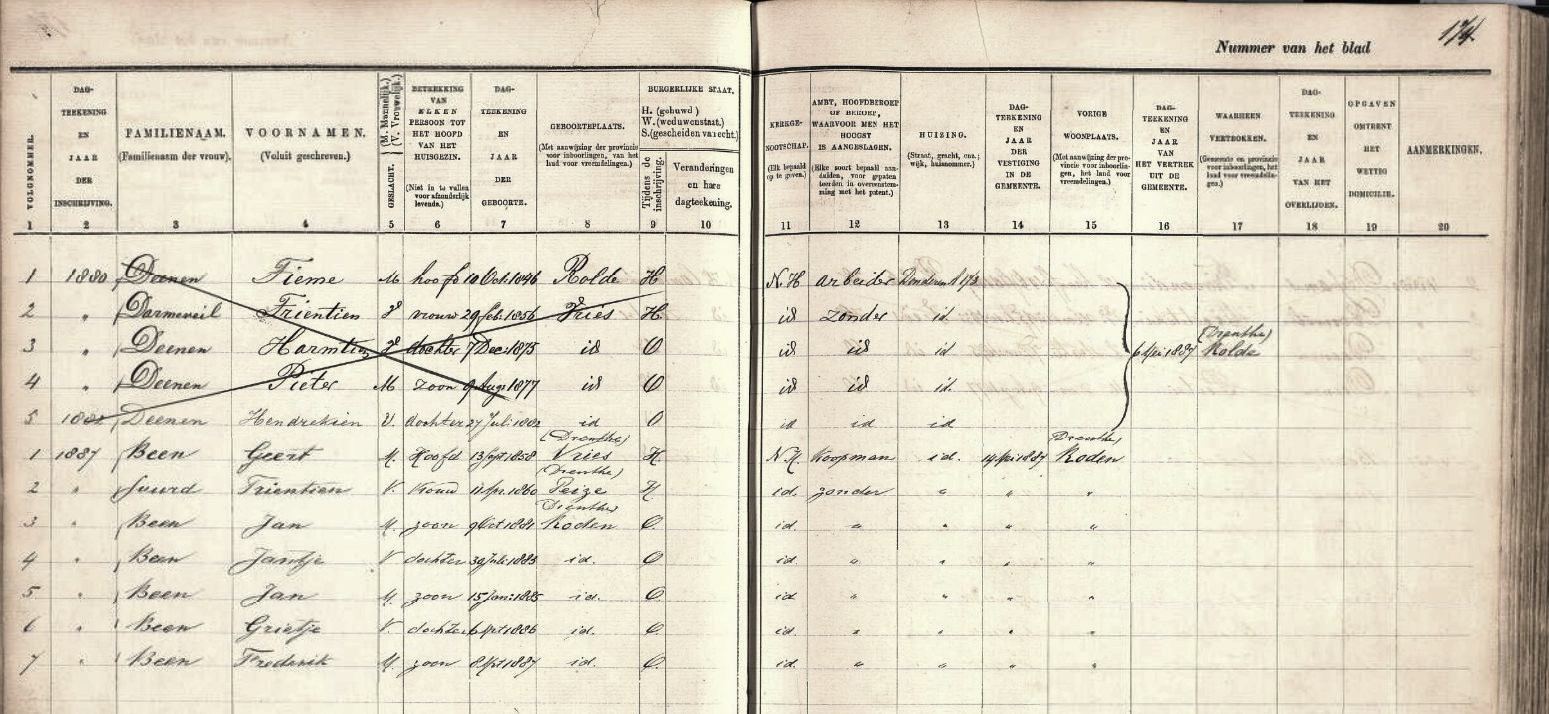 Nummer van het blad 174
VOLGNOMMER. 1
DAGTEEKENING EN JAAR DER INSCHRIJVING. 2
FAMILIENAAM. (Familienaam der vrouw). 3
VOORNAMEN. (Voluit geschreven.) 4
GESLACHT. (M. Mannelijk.) (V. Vrouwelijk.) 5
BETREKKING VAN ELKEN PERSOON TOT HET HOOFD VAN HET HUISGEZIN. (Niet in te vullen voor afzonderlijk levende.) 6
DAGTEEKENING EN JAAR DER GEBOORTE. 7
GEBOORTEPLAATS. (Met aanwijzing der provincie voor inboorlingen, van het land voor vreemdelingen.) 8
BURGERLIJKE STAAT. H. (gehuwd) W. (weduwenstaat.) S. (gescheiden van echt.)
Tijdens de inschrijving. 9
Veranderingen en hare dagteekening. 10
KERKGENOOTSCHAP. (Elk bepaald op te geven.) 11
AMBT, HOOFDBEROEP OF BEROEP, WAARVOOR MEN HET HOOGST IS AANGESLAGEN. (Elke soort bepaald aanduiden, voor gepatenteerden in overeenstemming met het patent.) 12
HUIZING. (Straat, gracht, enz.; wijk, huisnommer.) 13
DAGTEEKENING EN JAAR DER VESTIGING IN DE GEMEENTE. 14
VORIGE WOONPLAATS. (Met aanwijzing der provincie voor inboorlingen, het land voor vreemdelingen.) 15
DAGTEEKENING EN JAAR VAN HET VERTREK UIT DE GEMEENTE. 16
WAARHEEN VERTROKKEN. (Gemeente en provincie voor inboorlingen, het land voor vreemdelingen.) 17
DAGTEEKENING EN JAAR VAN HET OVERLIJDEN. 18
OPGAVEN OMTRENT HET WETTIG DOMICILIE. 19
AANMERKINGEN. 20
1 1880 Deenen Tieme M hoofd 10 Oct. 1846 Rolde H N.H arbeider Donderen A 173
2 " Darmeveil Trientien V vrouw 29 feb. 1856 Vries H id zonder id.
3 " Deenen Harmtien V dochter 7 Dec: 1875 id O id id id 6 Mei 1887 (Drenthe) Rolde
4 " Deenen Pieter M zoon 9 Aug 1877 id O id id id.
5 1882 Deenen Hendrikien V. dochter 27 Juli 1882 id O id id id
1 1887 Been Geert M. Hoofd 13 Sept 1858 (Drenthe) Vries H. N.H. Koopman id. 14 Mei 1887 (Drenthe) Roden
2 " Suurd Trientien V. vrouw 1860 (Drenthe) Peize H id. zonder " " "
3 " Been Jan M. zoon 9 Oct 1881 Drenthe Roden O. id. " " " "
4 " Been Jantje V dochter 30 Juli 1883 id. O id. " " " "
5 " Been Jan M. zoon 15 Jan: 1885 id. O. id " " " "
6 " Been Grietje V. dochter 6 Sept 1886 id. O. id. " " " "
7 " Been Frederik M. zoon 8 Sept 1887 id. O. id. " " " "